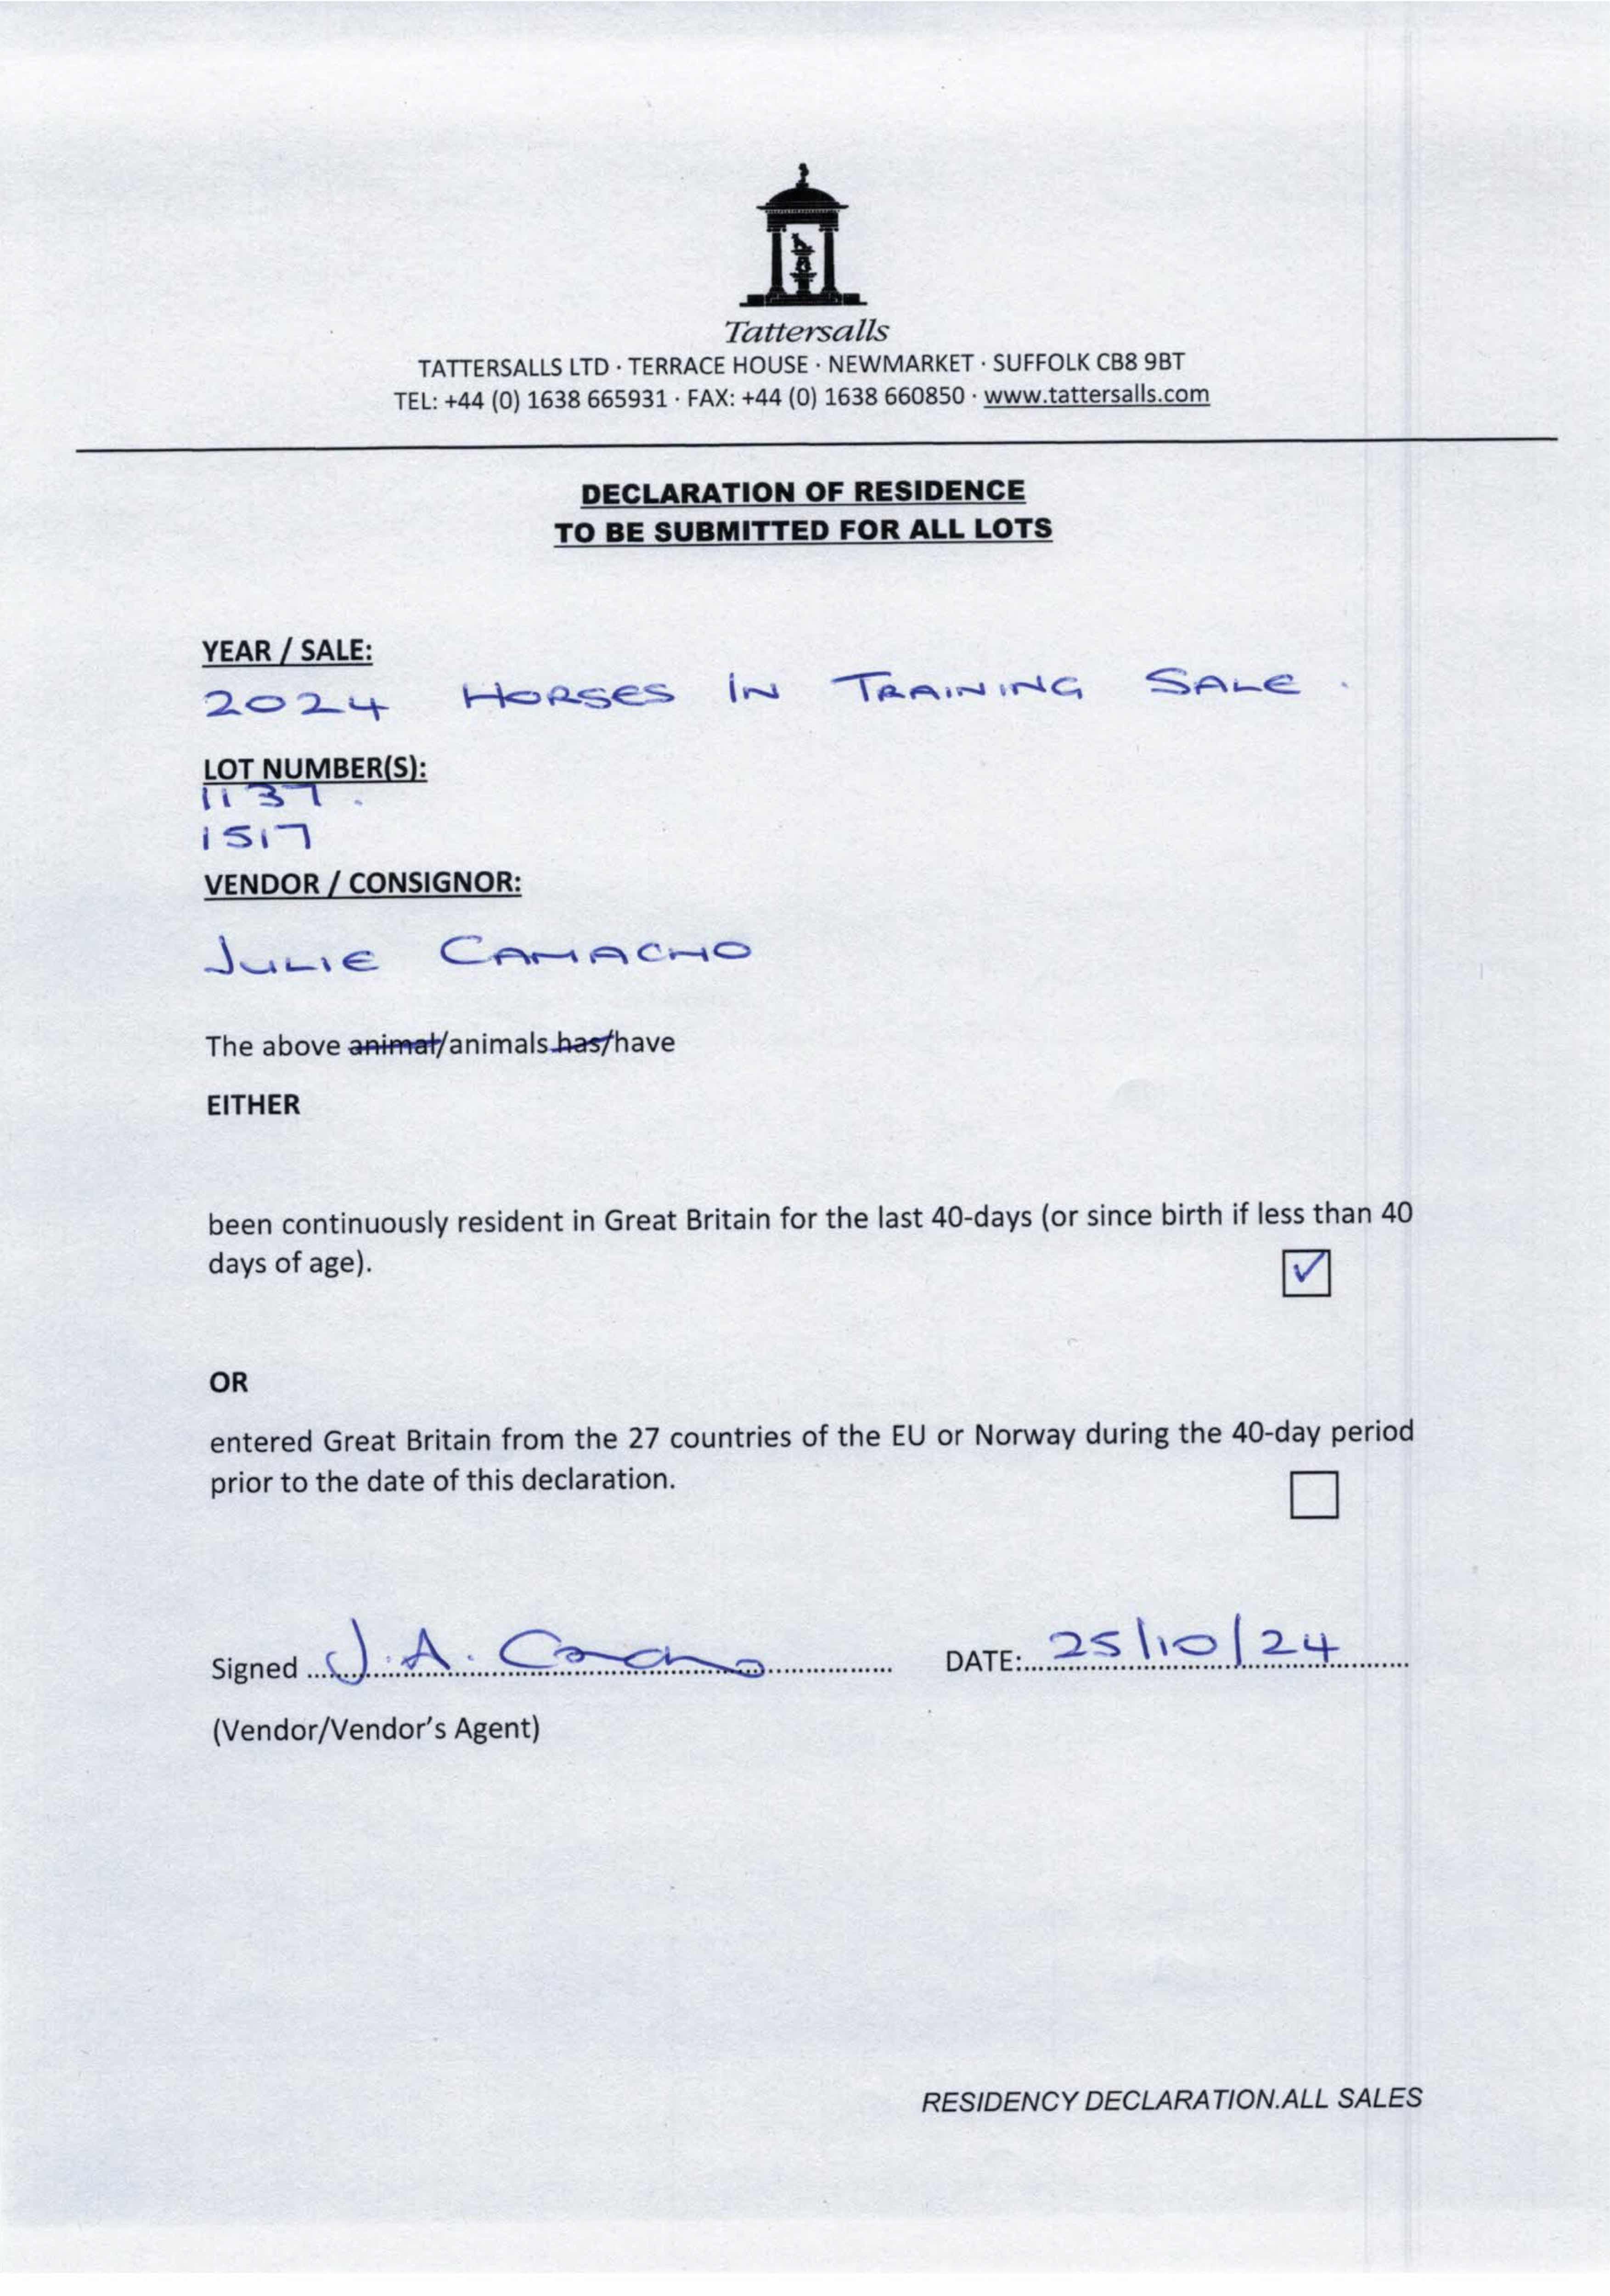 Tattersalls
TATTERSALLS LTD · TERRACE HOUSE · NEWMARKET · SUFFOLK CB8 9BT
TEL: +44 (0) 1638 665931 · FAX: +44 (0) 1638 660850 · www.tattersalls.com
DECLARATION OF RESIDENCE
TO BE SUBMITTED FOR ALL LOTS
YEAR / SALE:
2024 HORSES IN TRAINING SALE.
LOT NUMBER(S):
1137.
1517
VENDOR / CONSIGNOR:
JULIE CAMACHO
The above animal/animals has/have
EITHER
been continuously resident in Great Britain for the last 40-days (or since birth if less than 40
days of age).
✓
OR
entered Great Britain from the 27 countries of the EU or Norway during the 40-day period
prior to the date of this declaration.
Signed J.A. Camacho DATE: 25/10/24
(Vendor/Vendor's Agent)
RESIDENCY DECLARATION.ALL SALES